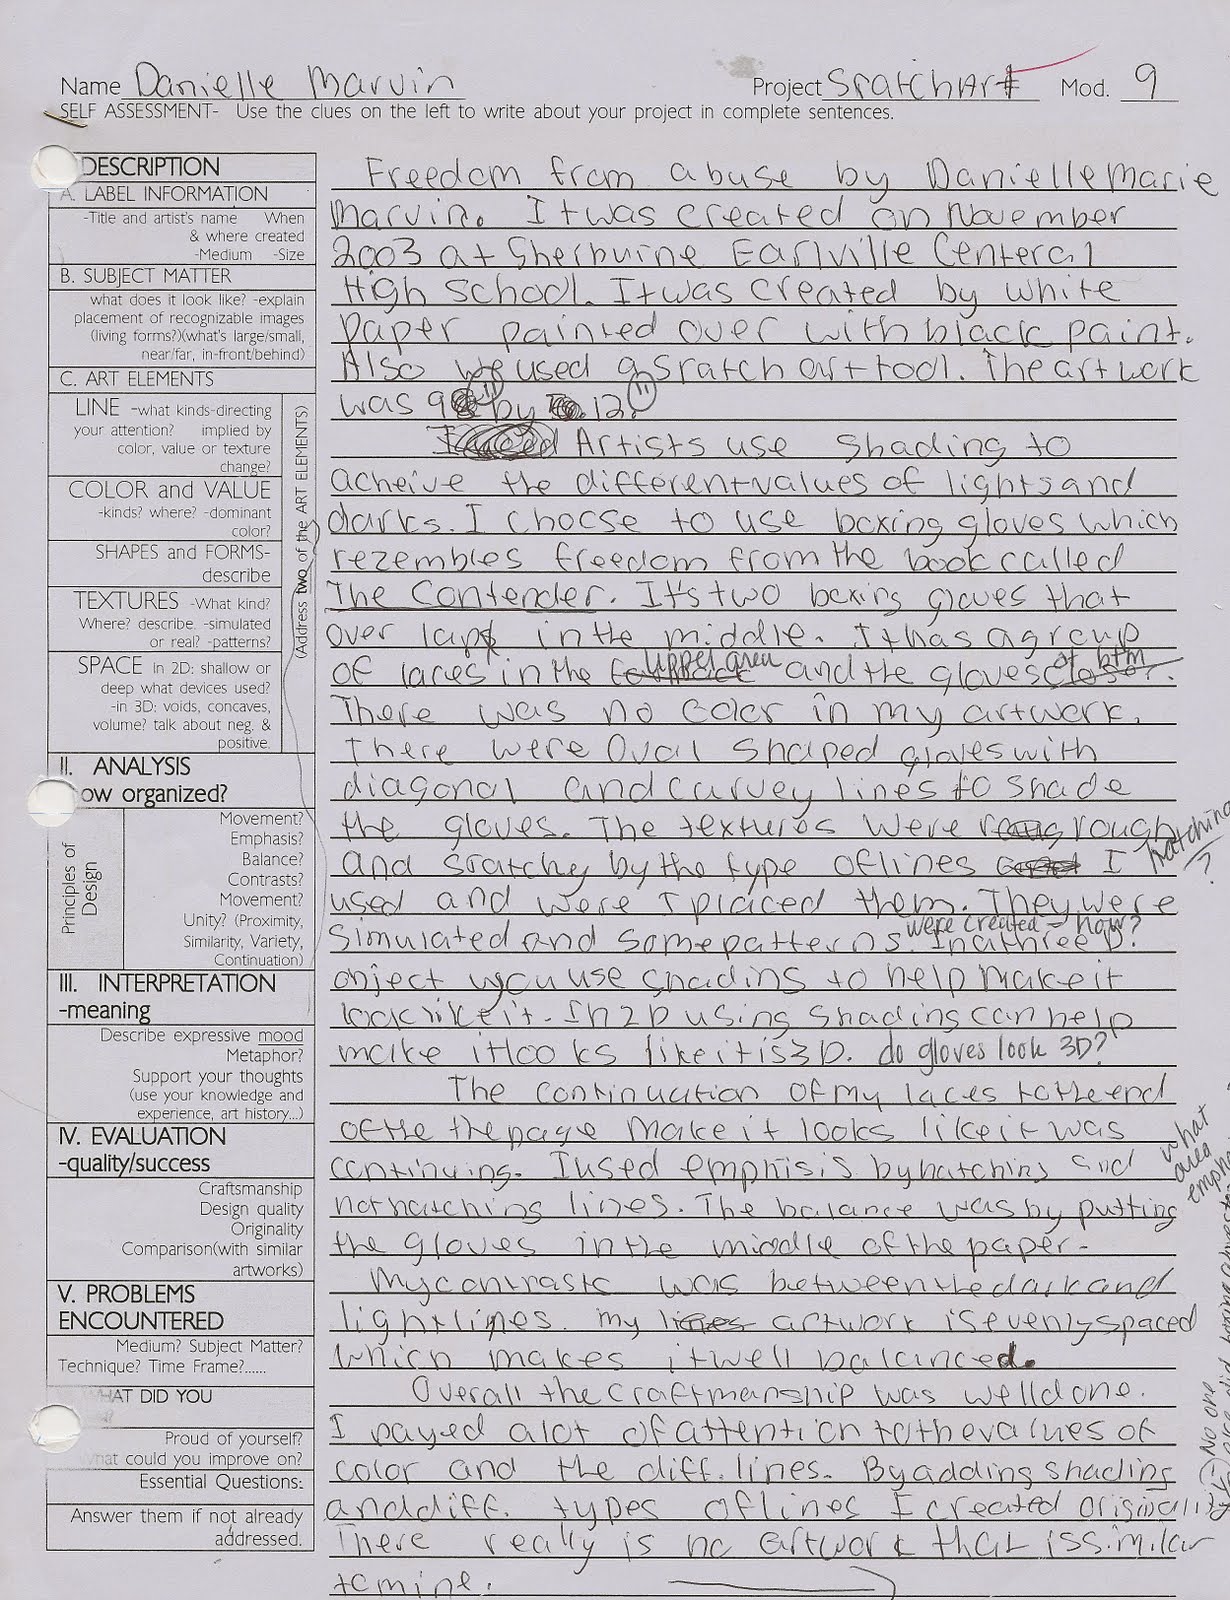 Name Danielle Marvin Project SratchArt Mod. 9
SELF ASSESSMENT- Use the clues on the left to write about your project in complete sentences.
DESCRIPTION
A. LABEL INFORMATION
-Title and artist's name When
& where created
-Medium -Size
B. SUBJECT MATTER
what does it look like? -explain
placement of recognizable images
(living forms?)(what's large/small,
near/far, in-front/behind)
C. ART ELEMENTS
LINE -what kinds-directing
your attention? implied by
color, value or texture
change?
COLOR and VALUE
-kinds? where? -dominant
color?
SHAPES and FORMS-
describe
TEXTURES -What kind?
Where? describe. -simulated
or real? -patterns?
SPACE In 2D: shallow or
deep what devices used?
-in 3D: voids, concaves,
volume? talk about neg. &
positive.
(Address two of the ART ELEMENTS)
II. ANALYSIS
ow organized?
Principles of
Design
Movement?
Emphasis?
Balance?
Contrasts?
Movement?
Unity? (Proximity,
Similarity, Variety,
Continuation)
III. INTERPRETATION
-meaning
Describe expressive mood
Metaphor?
Support your thoughts
(use your knowledge and
experience, art history...)
IV. EVALUATION
-quality/success
Craftsmanship
Design quality
Originality
Comparison(with similar
artworks)
V. PROBLEMS
ENCOUNTERED
Medium? Subject Matter?
Technique? Time Frame?......
HAT DID YOU
Proud of yourself?
hat could you improve on?
Essential Questions:
Answer them if not already
addressed.
Freedom from abuse by Danielle Marie
Marvin. It was created on November
2003 at Sherburne Earlville Centeral
High School. It was created by white
paper painted over with black paint.
Also we used a sratch art tool. The art work
was 9" by 12."
Artists use shading to
acheive the different values of lights and
darks. I choose to use boxing gloves which
rezembles freedom from the book called
The Contender. It's two boxing gloves that
over laps in the middle. It has a group
of laces in the upper area and the gloves at btm
There was no color in my artwork.
There were Oval shaped gloves with
diagonal and curvey lines to shade
the gloves. The textures were rough
and sratchy by the type of lines I hatching?
used and were I placed them. They were
simulated and some patterns were created - how? In a three D?
object you use shading to help make it
look like it. In 2D using shading can help
make it looks like it is 3D. do gloves look 3D?
The continuation of my laces to the end
of the the page make it looks like it was
continuing. I used emphisis by hatching and what area
not hatching lines. The balance was by putting
the gloves in the middle of the paper.
My contrasts was between the dark and
light lines. my artwork is evenly spaced
which makes it well balanced.
Overall the craftmanship was well done.
I payed a lot of attention to the values of
color and the diff. lines. By adding shading
and diff. types of lines I created originality
There really is no artwork that is similar
to mine.
No one